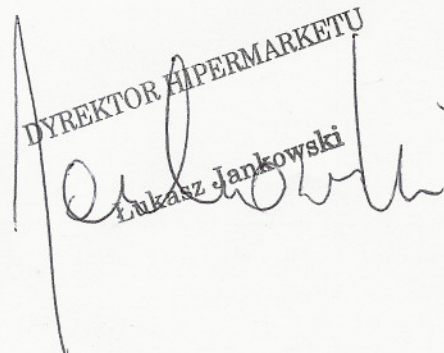 DYREKTOR HIPERMARKETU
Łukasz Jankowski